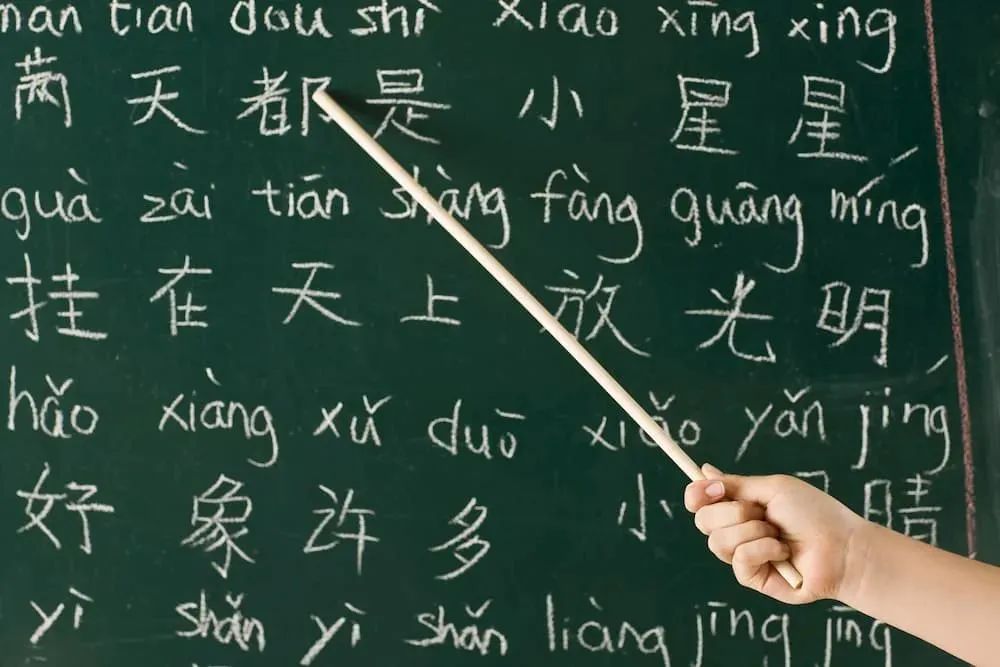 man tian dou shì xiao xīng xing
满 天 都 是 小 星 星
guà zài tiān shàng fàng guāng míng
挂 在 天 上 放 光 明
hǎo xiàng xǔ duō xiǎo yǎn jíng
好 象 许 多 小 睛
yì shǎn yì shǎn liàng jīng jīng